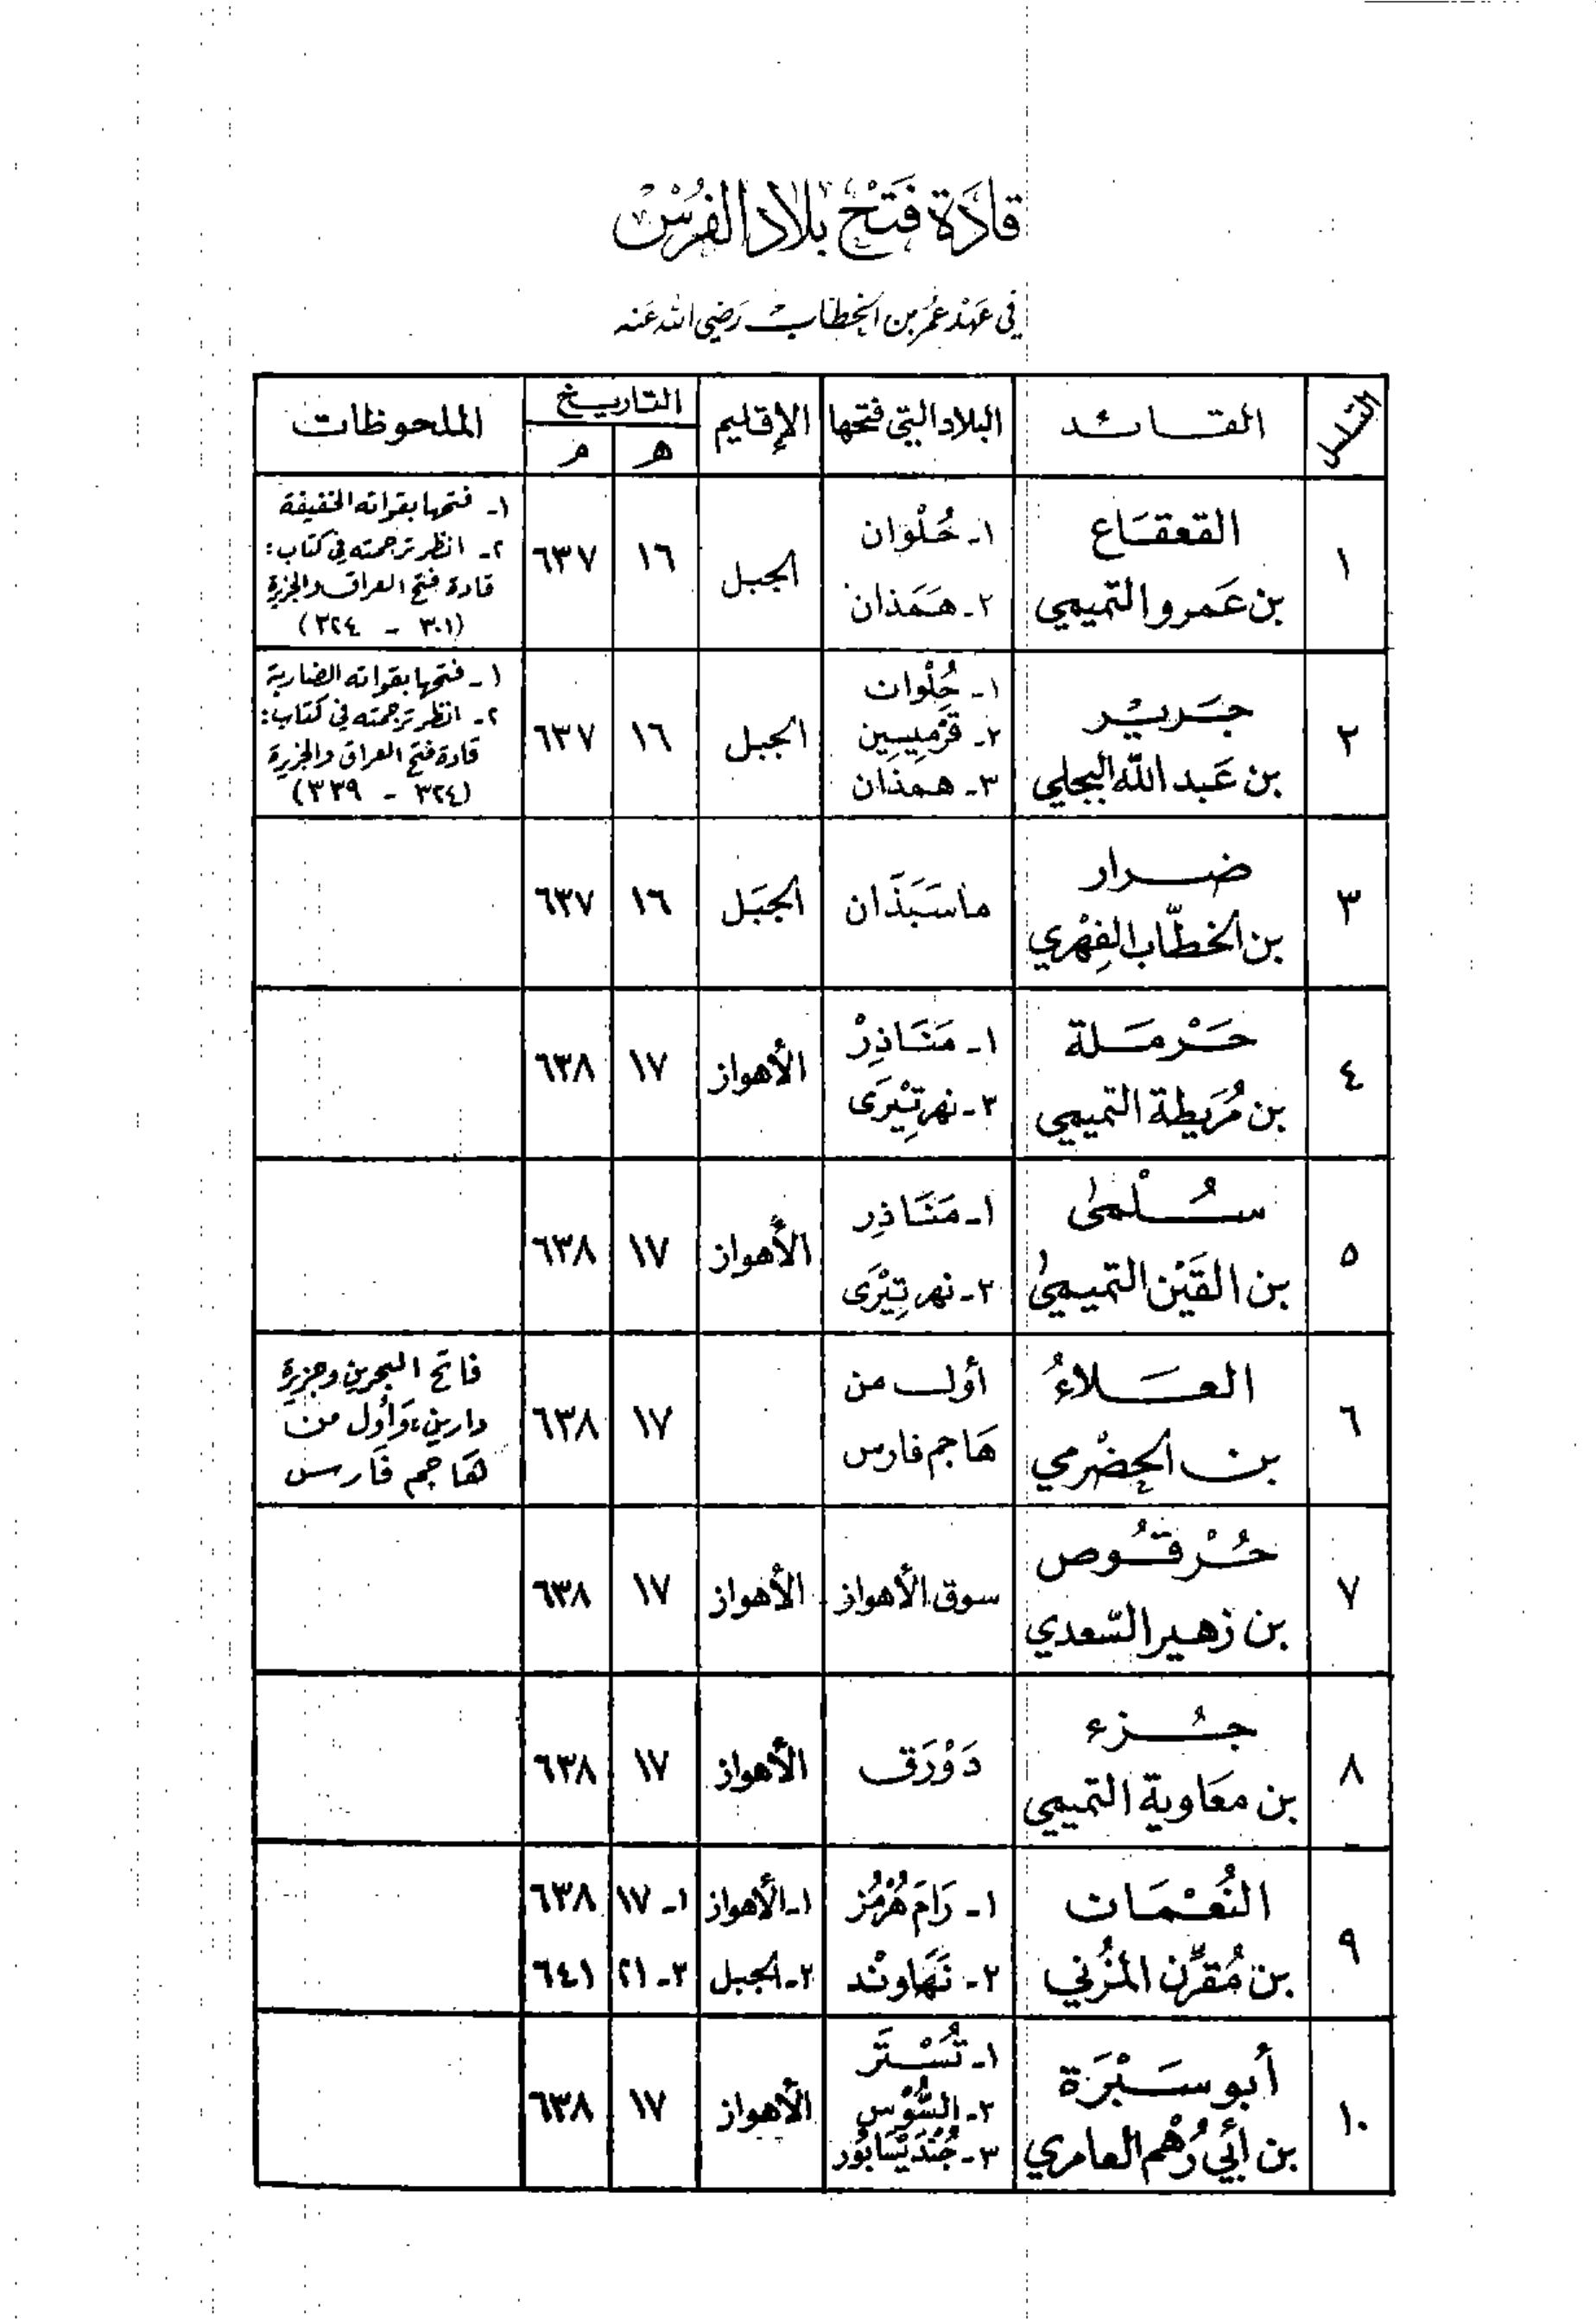 قادَة فَتْح بلاد الفُرْس
في عَهْد عُمَر بن الخطاب رَضِي الله عَنه
التسلسل | القائد | البلاد التي فتحها | الإقليم | التاريخ | الملحوظات
هـ | م
١ | القعقاع بن عَمرو التميمي | ١ـ حُلْوان ٢ـ هَمَذان | الجبل | ١٦ | ٦٣٧ | ١ـ فتحها بقواته الخفيفة ٢ـ انظر ترجمته في كتاب: قادة فتح العراق والجزيرة (٣٠١ - ٣٢٤)
٢ | جَرير بن عَبد الله البجلي | ١ـ حُلْوان ٢ـ قَرْمِيسِين ٣ـ همذان | الجبل | ١٦ | ٦٣٧ | ١ـ فتحها بقواته الضاربة ٢ـ انظر ترجمته في كتاب: قادة فتح العراق والجزيرة (٣٢٤ - ٣٣٩)
٣ | ضرار بن الخطّاب الفِهْري | ماسَبَذَان | الجبَل | ١٦ | ٦٣٧
٤ | حَرْمَلة بن مُرَيطة التميمي | ١ـ مَنَاذِرْ ٢ـ نهر تِيْرَى | الأهواز | ١٧ | ٦٣٨
٥ | سُلْمى بن القَيْن التميمي | ١ـ مَنَاذِر ٢ـ نهر تِيْرَى | الأهواز | ١٧ | ٦٣٨
٦ | العَلاءُ بن الحضْرمي | أول من هَاجم فارس | ١٧ | ٦٣٨ | فاتح البحرين وجزيرة دارين، وَأول من هَاجم فَارس
٧ | حُرْقُوص بن زهير السّعدي | سوق الأهواز | الأهواز | ١٧ | ٦٣٨
٨ | جُزء بن معَاوية التميمي | دَوْرَق | الأهواز | ١٧ | ٦٣٨
٩ | النُعْمَان بن مُقَرِّن المُزَني | ١ـ رَامَ هُرْمُز ٢ـ نَهَاوَنْد | ١ـ الأهواز ٢ـ الجبل | ١ـ ١٧ ٢ـ ٢١ | ٦٣٨ ٦٤١
١٠ | أبو سَبْرَة بن أبي رُهْم العامري | ١ـ تُسْتَر ٢ـ السُّوْس ٣ـ جُنْدَيْسَابُور | الأهواز | ١٧ | ٦٣٨